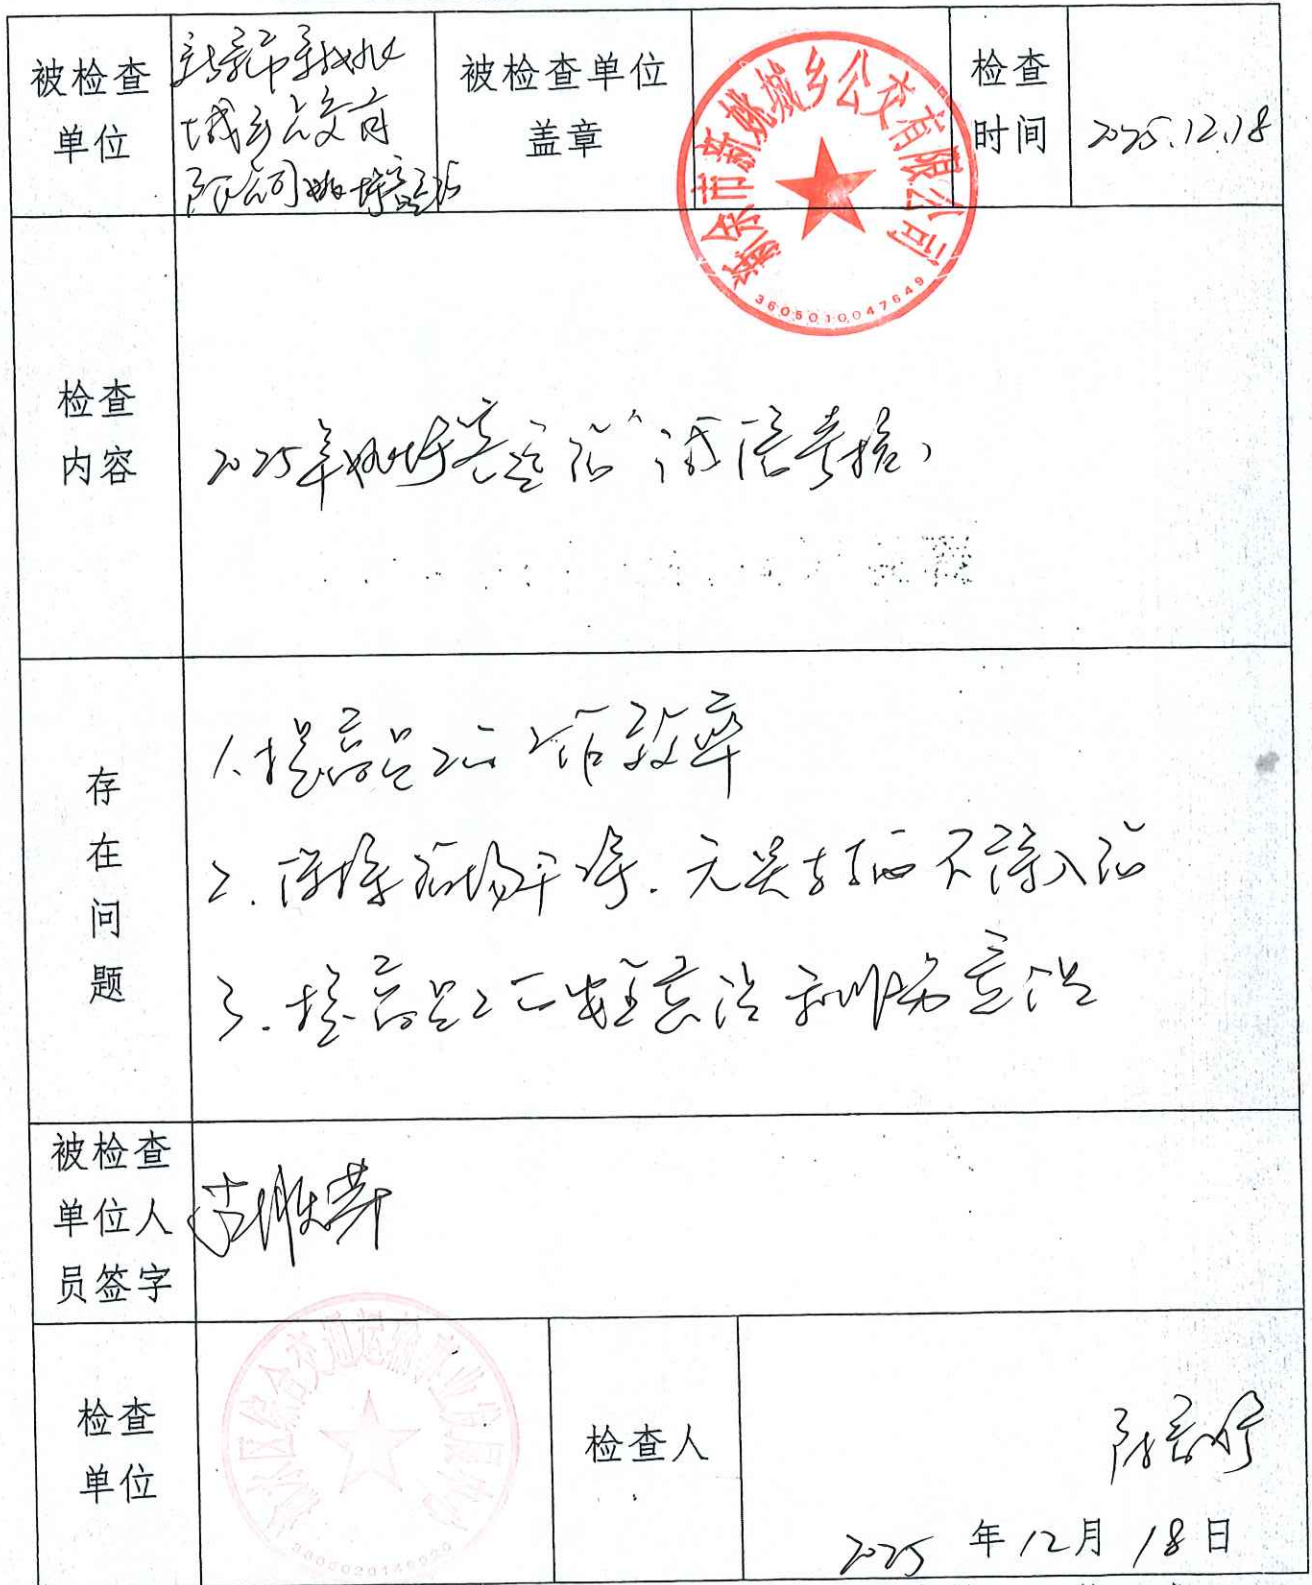 被检查
单位
新余市新姚
城乡公交有
限公司姚圩客运站
被检查单位
盖章
新余市新姚城乡公交有限公司
3605010047649
检查
时间
2025.12.18
检查
内容
2025年姚圩客运站"诚信考核"
存
在
问
题
1.提高员工工作效率
2.保持站场干净.无关车辆不得入站
3.提高员工安全意识和服务意识
被检查
单位人
员签字
检查
单位
渝水区综合交通运输事业发展中心
检查人
2025年12月18日